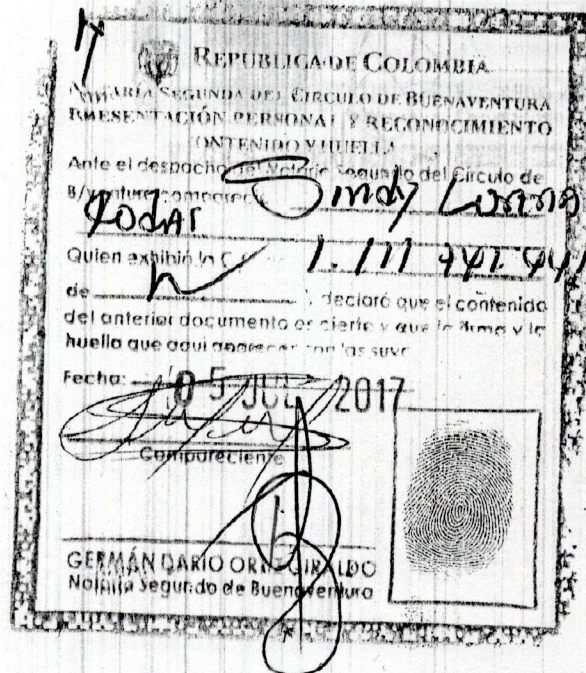 REPUBLICA DE COLOMBIA
NOTARIA SEGUNDA DEL CIRCULO DE BUENAVENTURA
PRESENTACIÓN PERSONAL Y RECONOCIMIENTO
CONTENIDO Y HUELLA
Ante el despacho del Notario Segundo del Círculo de
B/ventura compareció Sindy Lorena
Quien exhibió la C.C.
de , declaró que el contenido
del anterior documento es cierto y que la firma y la
huella que aquí aparecen son las suya
Fecha: 05 JUL 2017
Compareciente
GERMÁN DARIO GIRALDO
Notario Segundo de Buenaventura